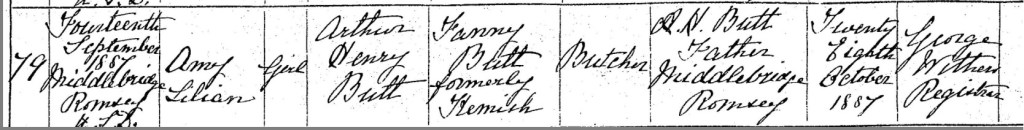 79
Fourteenth
September
1887
Middlebridge
Romsey
U.S.D.
Amy
Lilian
Girl
Arthur
Henry
Butt
Fanny
Butt
formerly
Kemish
Butcher
A. H. Butt
Father
Middlebridge
Romsey
Twenty
Eighth
October
1887
George
Withers
Registrar